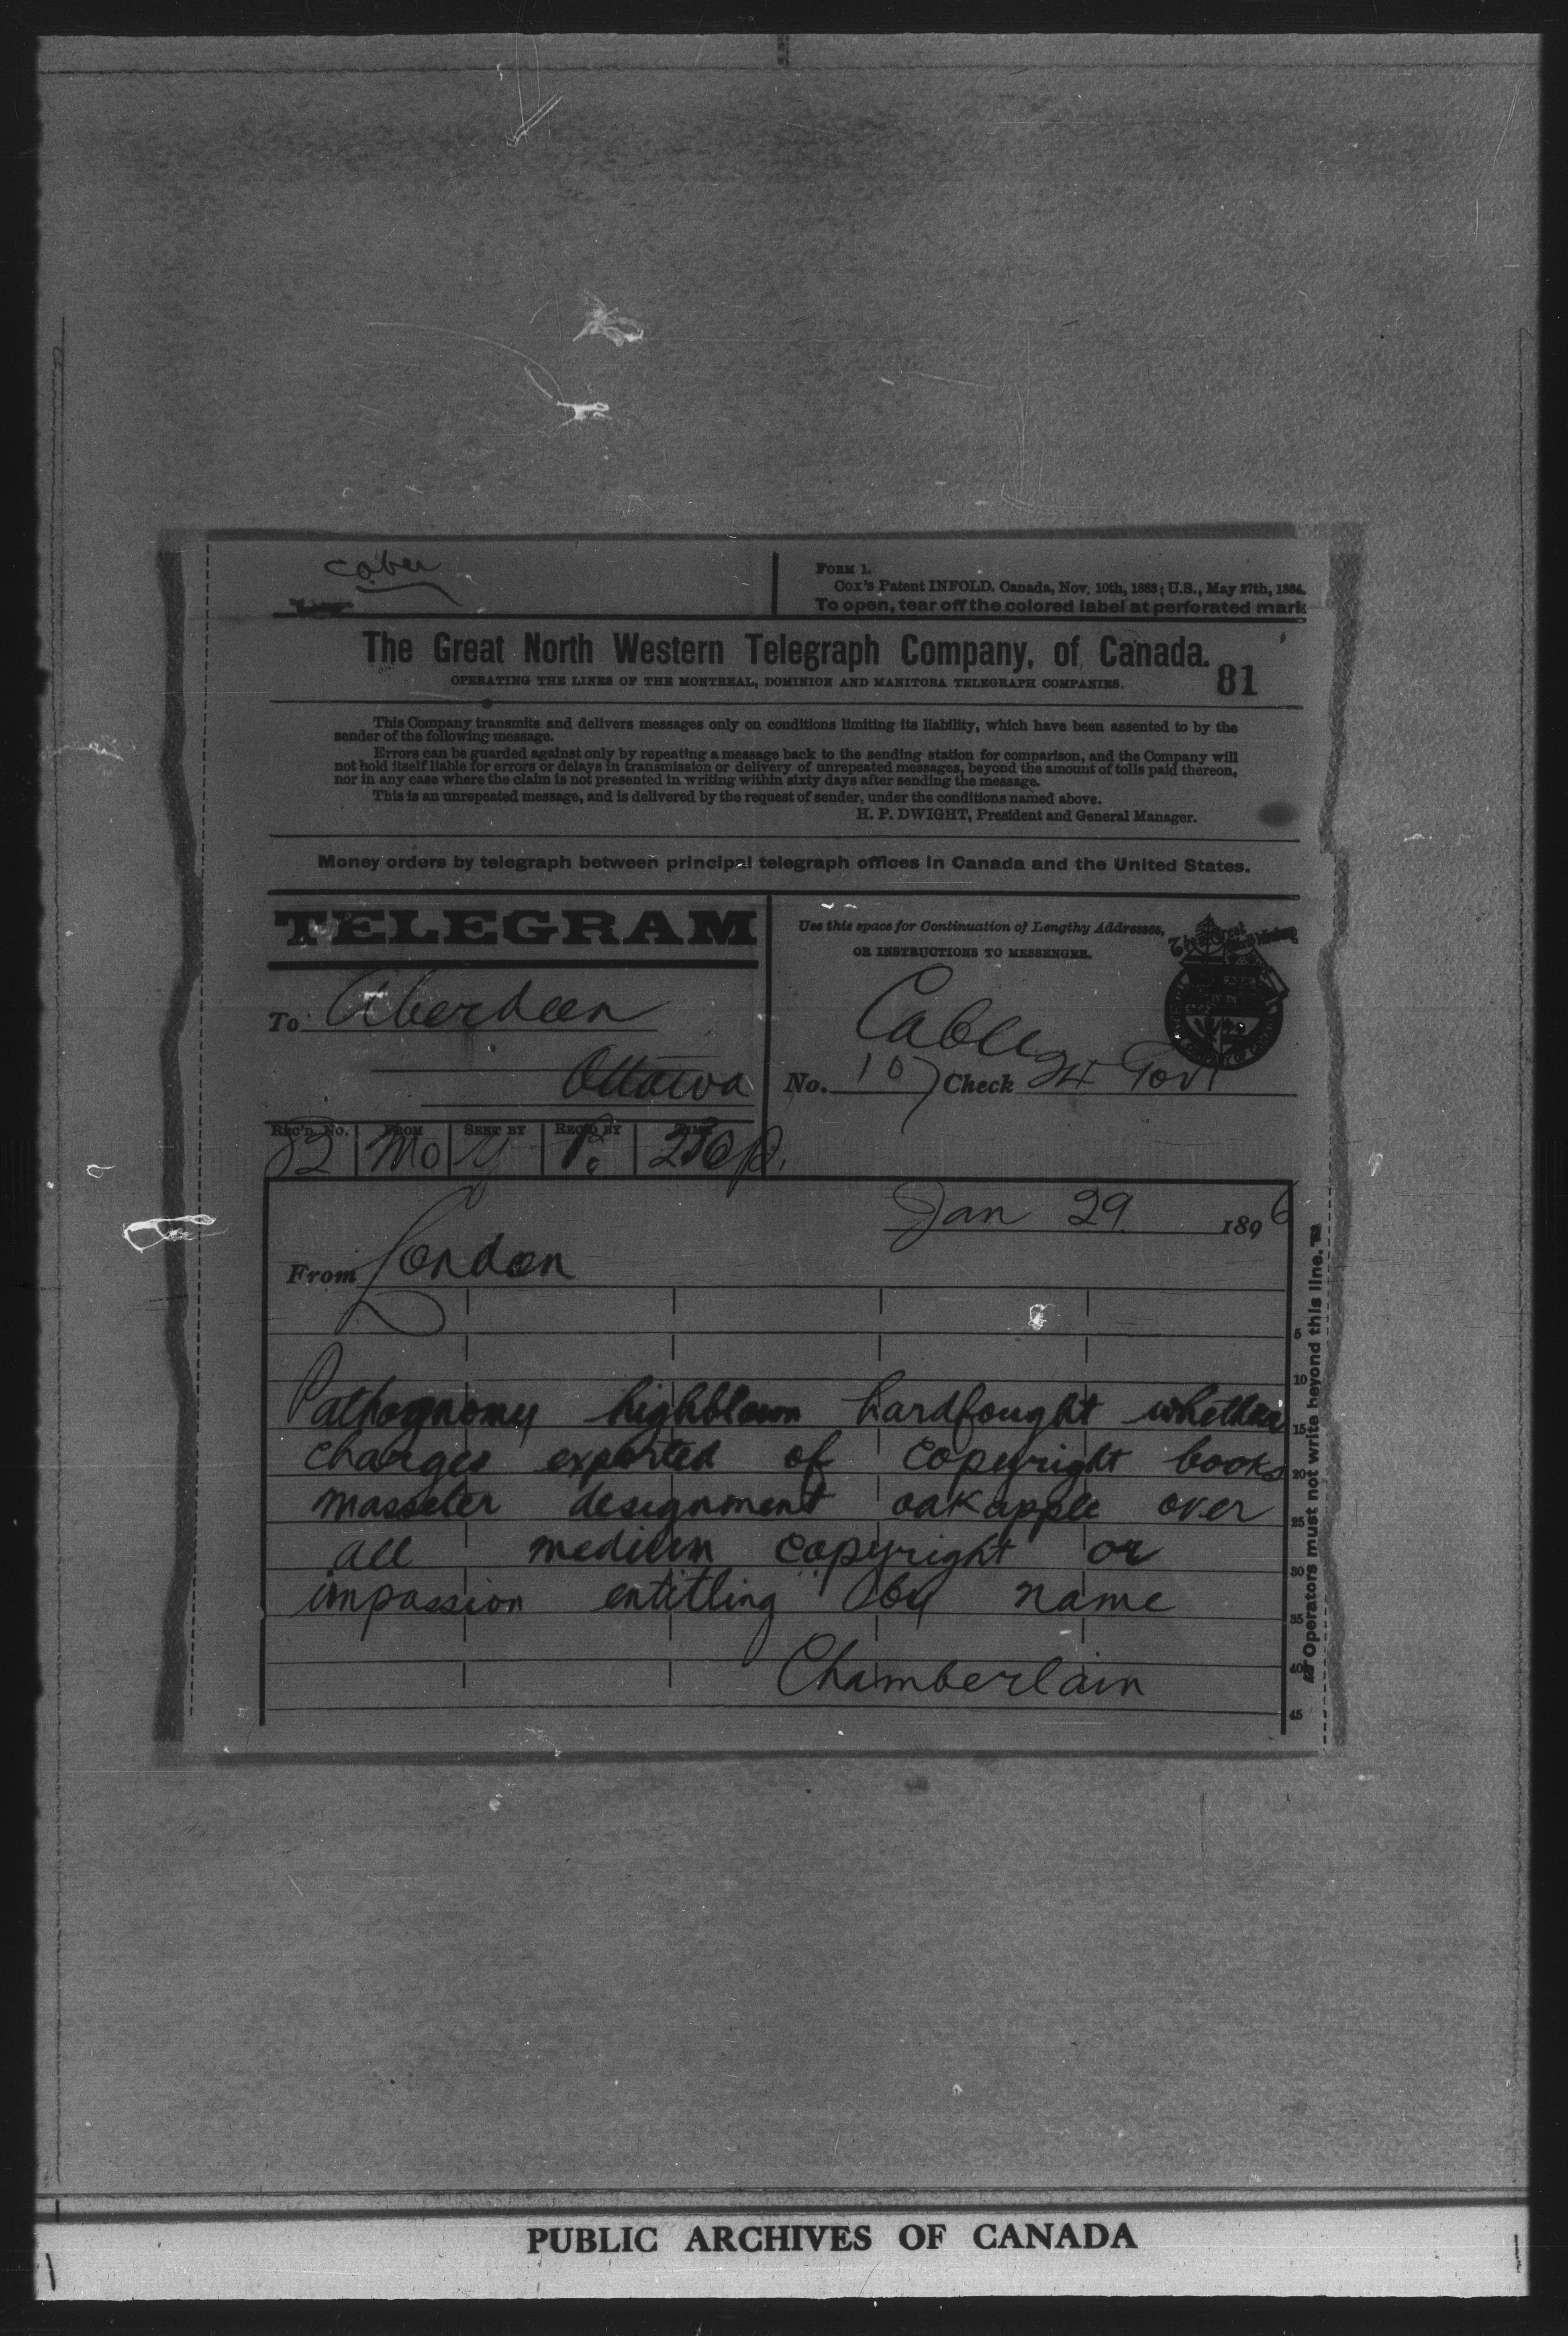 FORM 1.
Cox's Patent INFOLD. Canada, Nov. 10th, 1883; U.S., May 27th, 1884.
To open, tear off the colored label at perforated mark
The Great North Western Telegraph Company, of Canada.
OPERATING THE LINES OF THE MONTREAL, DOMINION AND MANITOBA TELEGRAPH COMPANIES.
81
This Company transmits and delivers messages only on conditions limiting its liability, which have been assented to by the
sender of the following message.
Errors can be guarded against only by repeating a message back to the sending station for comparison, and the Company will
not hold itself liable for errors or delays in transmission or delivery of unrepeated messages, beyond the amount of tolls paid thereon,
nor in any case where the claim is not presented in writing within sixty days after sending the message.
This is an unrepeated message, and is delivered by the request of sender, under the conditions named above.
H. P. DWIGHT, President and General Manager.
Money orders by telegraph between principal telegraph offices in Canada and the United States.
TELEGRAM
Use this space for Continuation of Lengthy Addresses,
OR INSTRUCTIONS TO MESSENGER.
To Aberdeen
Ottawa
Cable
No. 107 Check 24 Govt
REC'D NO. FROM SENT BY REC'D BY TIME
82 Mo
Jan 29 1896
From London
Pathognomy highblown hardfought whether
charges exported of copyright books
masseter designment oakapple over
all medium copyright or
impassion entitling by name
Chamberlain
5
10
15
20
25
30
35
40
45
Operators must not write beyond this line.
PUBLIC ARCHIVES OF CANADA